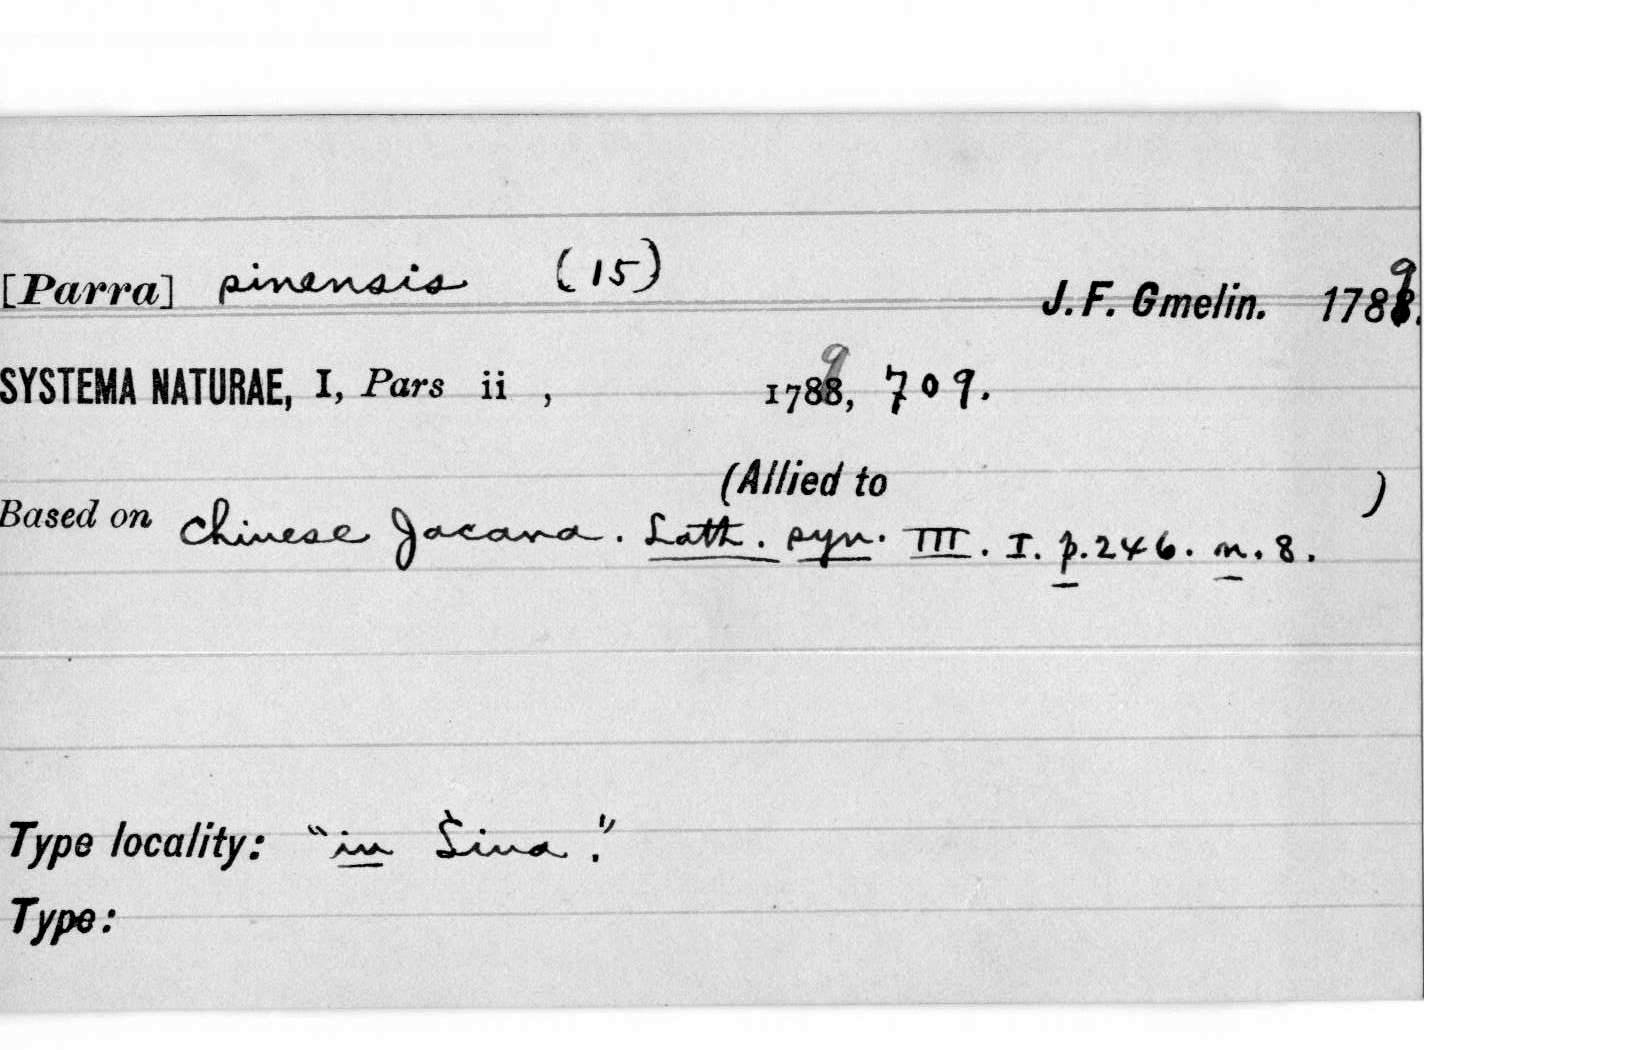 [Parra] sinensis (15)
J. F. Gmelin. 1789.
SYSTEMA NATURAE, I, Pars ii , 1789, 709.
(Allied to )
Based on Chinese Jacana. Lath. syn. III. I. p. 246. n. 8.
Type locality: "in Sina."
Type: